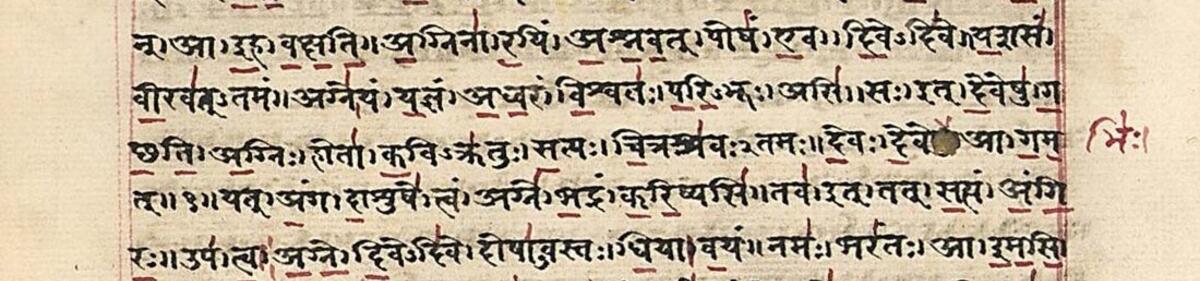 न्। आ। इह। वक्षति॥ अग्निना। रयिं। अश्नवत्। पोषं। एव। दिवेऽदिवे॥ यशसं।
वीरवत्ऽतमं॥ अग्ने। यं। यज्ञं। अध्वरं। विश्वतः। परिऽभूः। असि॥ सः। इत्। देवेषु। ग
च्छति। अग्निः। होता। कविऽक्रतुः। सत्यः। चित्रश्रवःऽतमः॥ देवः। देवे आ। गम
भिः।
त्॥१॥ यत्। अंग। दाशुषे। त्वं। अग्ने। भद्रं। करिष्यसि॥ तव। इत्। तत्। सत्यं। अंगि
रः॥ उप। त्वा। अग्ने। दिवेऽदिवे। दोषाऽवस्तः। धिया। वयं॥ नमः। भरंतः। आ। इमसि।